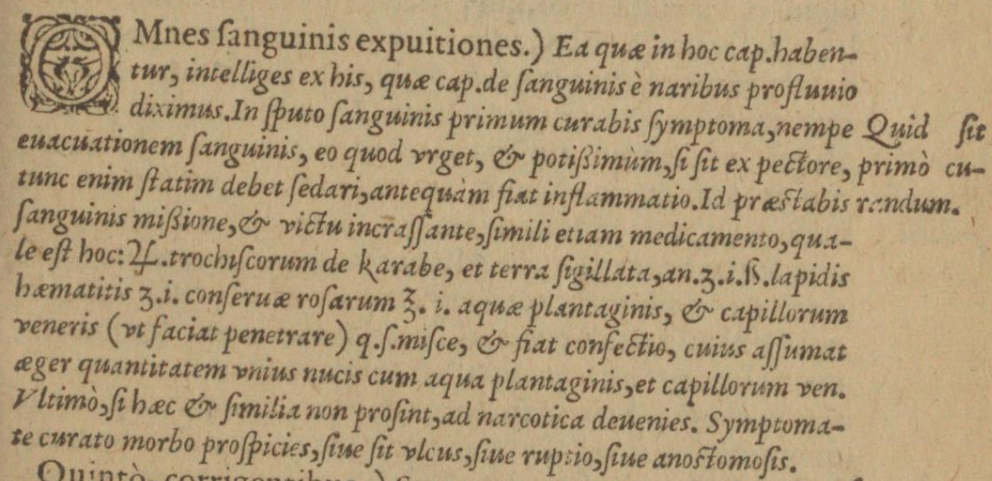 OMnes ſanguinis expuitiones.) Ea quæ in hoc cap.haben-
tur, intelliges ex his, quæ cap.de ſanguinis è naribus profluuio
diximus.In ſputo ſanguinis primum curabis ſymptoma,nempe
euacuationem ſanguinis, eo quod vrget, & potißimùm,ſi ſit ex pectore,
tunc enim ſtatim debet ſedari,antequàm fiat inflammatio.Id præſtabis
ſanguinis mißione,& victu incraſſante,ſimili etiam medicamento,qua-
le eſt hoc:♃.trochiſcorum de karabe, et terra ſigillata,an.ʒ.i.ß.lapidis
hæmatitis ʒ.i. conſeruæ roſarum ℥. i. aquæ plantaginis, & capillorum
veneris (vt faciat penetrare) q.ſ.miſce, & fiat confectio, cuius aſſumat
æger quantitatem vnius nucis cum aqua plantaginis,et capillorum ven.
Vltimò,ſi hæc & ſimilia non proſint,ad narcotica deuenies. Symptoma-
te curato morbo proſpicies,ſiue ſit vlcus,ſiue ruptio,ſiue anoſtomoſis.
Quintò corrigentibus.)
Quid ſit
primò cu-
randum.